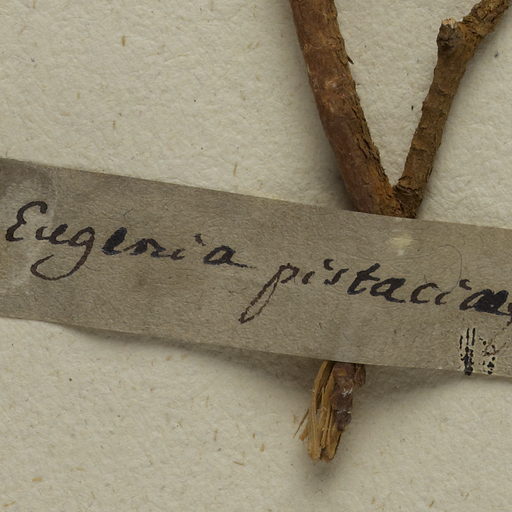 Eugenia pistaciae